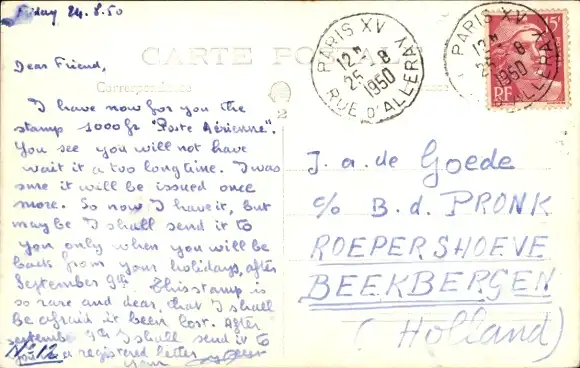 Friday 24.8.50
CARTE POSTALE
Correspondance
Dear Friend,
I have now for you the
stamp 1000fr "Poste Aérienne".
You see you will not have
wait it a too longtime. I was
sure it will be issued once
more. So now I have it, but
may be I shall send it to
you only when you will be
back from your holidays, after
September 9th. This stamp is
so rare and dear, that I shall
be afraid it been lost. After
september 9th I shall send it to
you in a registered letter
your
N° 12
2
PARIS XV
12H
25 8
1950
RUE D'ALLERAY
PARIS XV
12H
25 8
1950
D'ALLERAY
15F
RF
J. a. de Goede
c/o B. d. PRONK
ROEPERSHOEVE
BEEKBERGEN
(Holland)